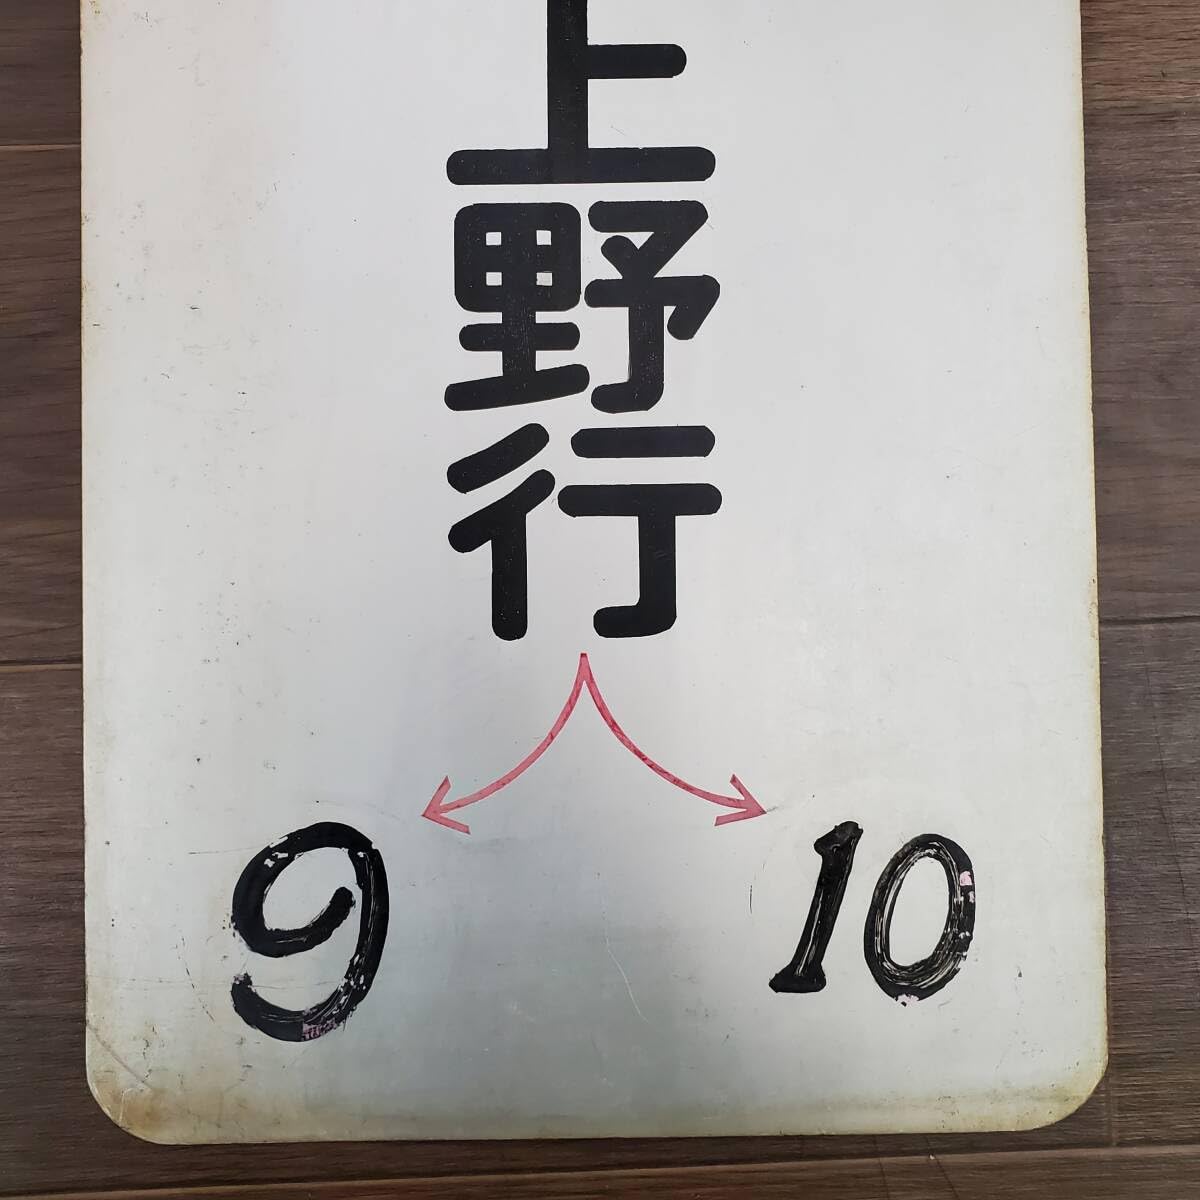 上野行
9 10